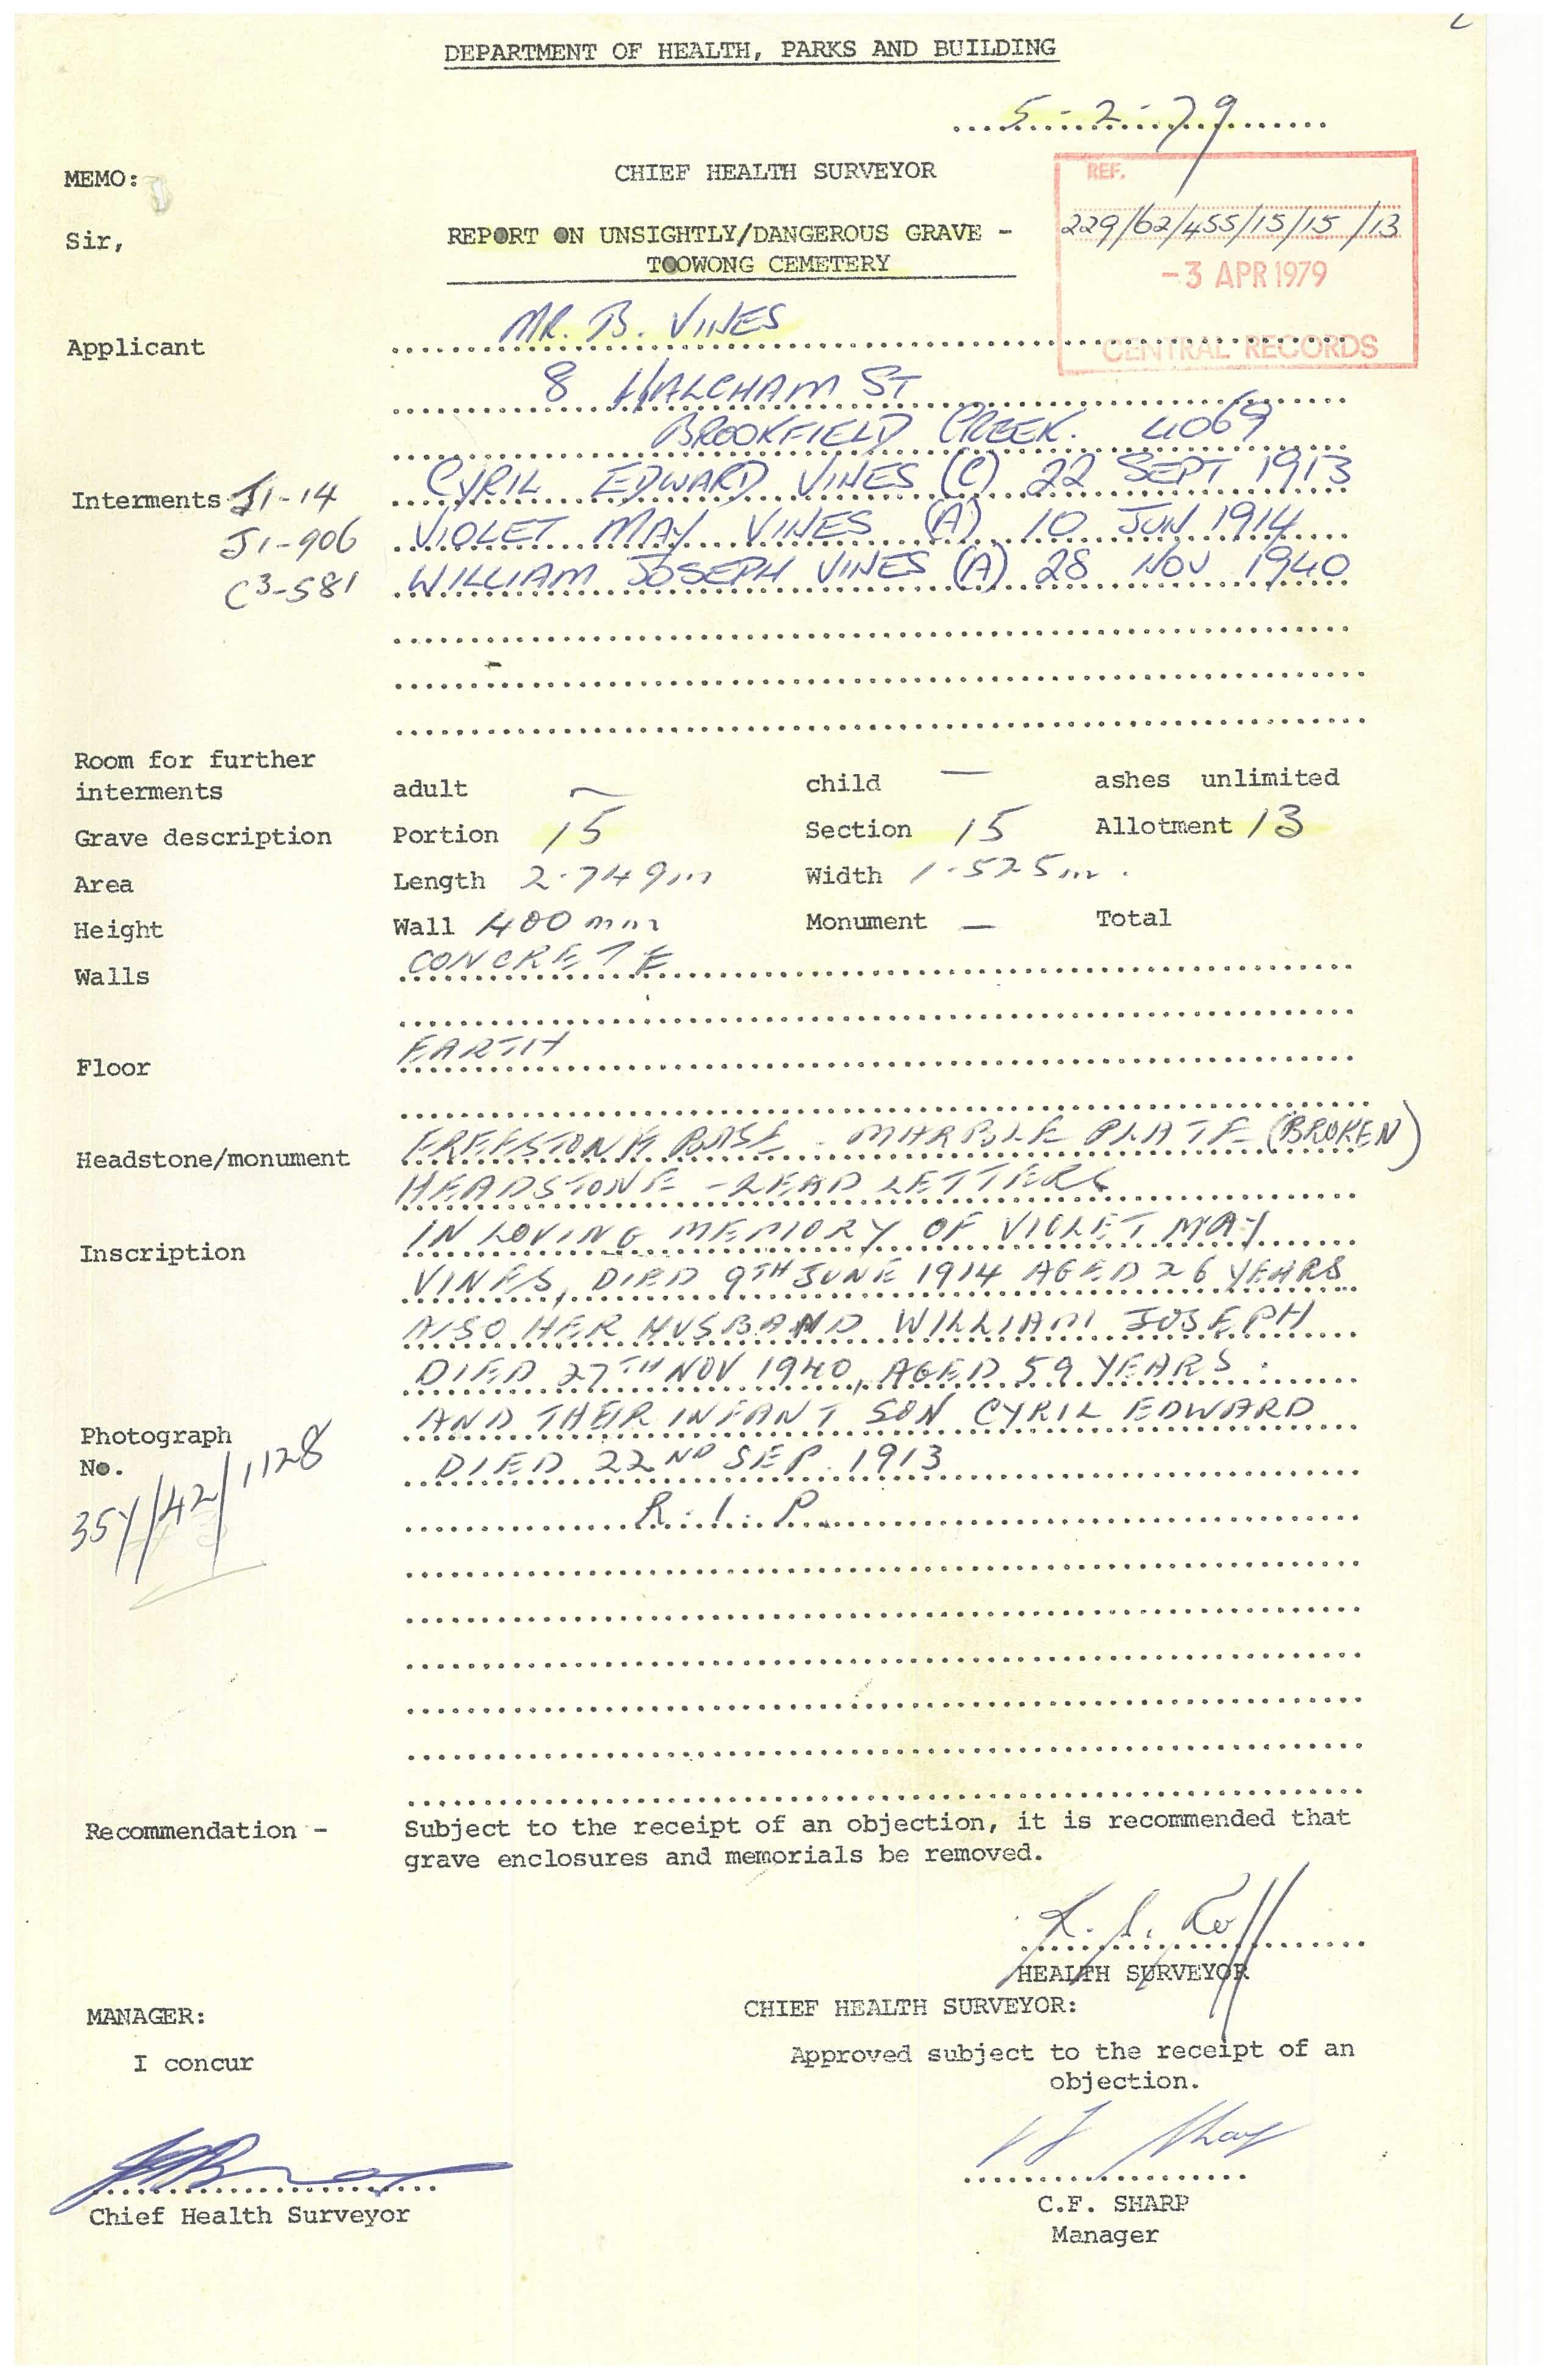 DEPARTMENT OF HEALTH, PARKS AND BUILDING
5-2-79
MEMO: CHIEF HEALTH SURVEYOR
REF.
229/62/455/15/15/13
-3 APR 1979
CENTRAL RECORDS
Sir, REPORT ON UNSIGHTLY/DANGEROUS GRAVE -
TOOWONG CEMETERY
Applicant MR. B. VINES
8 ST
BROOKFIELD CREEK. 4069
Interments J1-14 CYRIL EDWARD VINES (C) 22 SEPT 1913
J1-906 VIOLET MAY VINES (A) 10 JUN 1914
C3-581 WILLIAM JOSEPH VINES (A) 28 NOV 1940
Room for further
interments adult — child — ashes unlimited
Grave description Portion 15 Section 15 Allotment 13
Area Length 2.749m Width 1.525m.
Height Wall 400mm Monument — Total
Walls CONCRETE
Floor EARTH
Headstone/monument FREESTONE BASE - MARBLE PLATE (BROKEN)
HEADSTONE - LEAD LETTERS
Inscription IN LOVING MEMORY OF VIOLET MAY
VINES, DIED 9TH JUNE 1914 AGED 26 YEARS
ALSO HER HUSBAND WILLIAM JOSEPH
DIED 27TH NOV 1940, AGED 59 YEARS.
AND THEIR INFANT SON CYRIL EDWARD
DIED 22ND SEP. 1913
R.I.P.
Photograph
No.
354/42/1128
Recommendation - Subject to the receipt of an objection, it is recommended that
grave enclosures and memorials be removed.
HEALTH SURVEYOR
MANAGER: CHIEF HEALTH SURVEYOR:
I concur Approved subject to the receipt of an
objection.
Chief Health Surveyor
C.F. SHARP
Manager